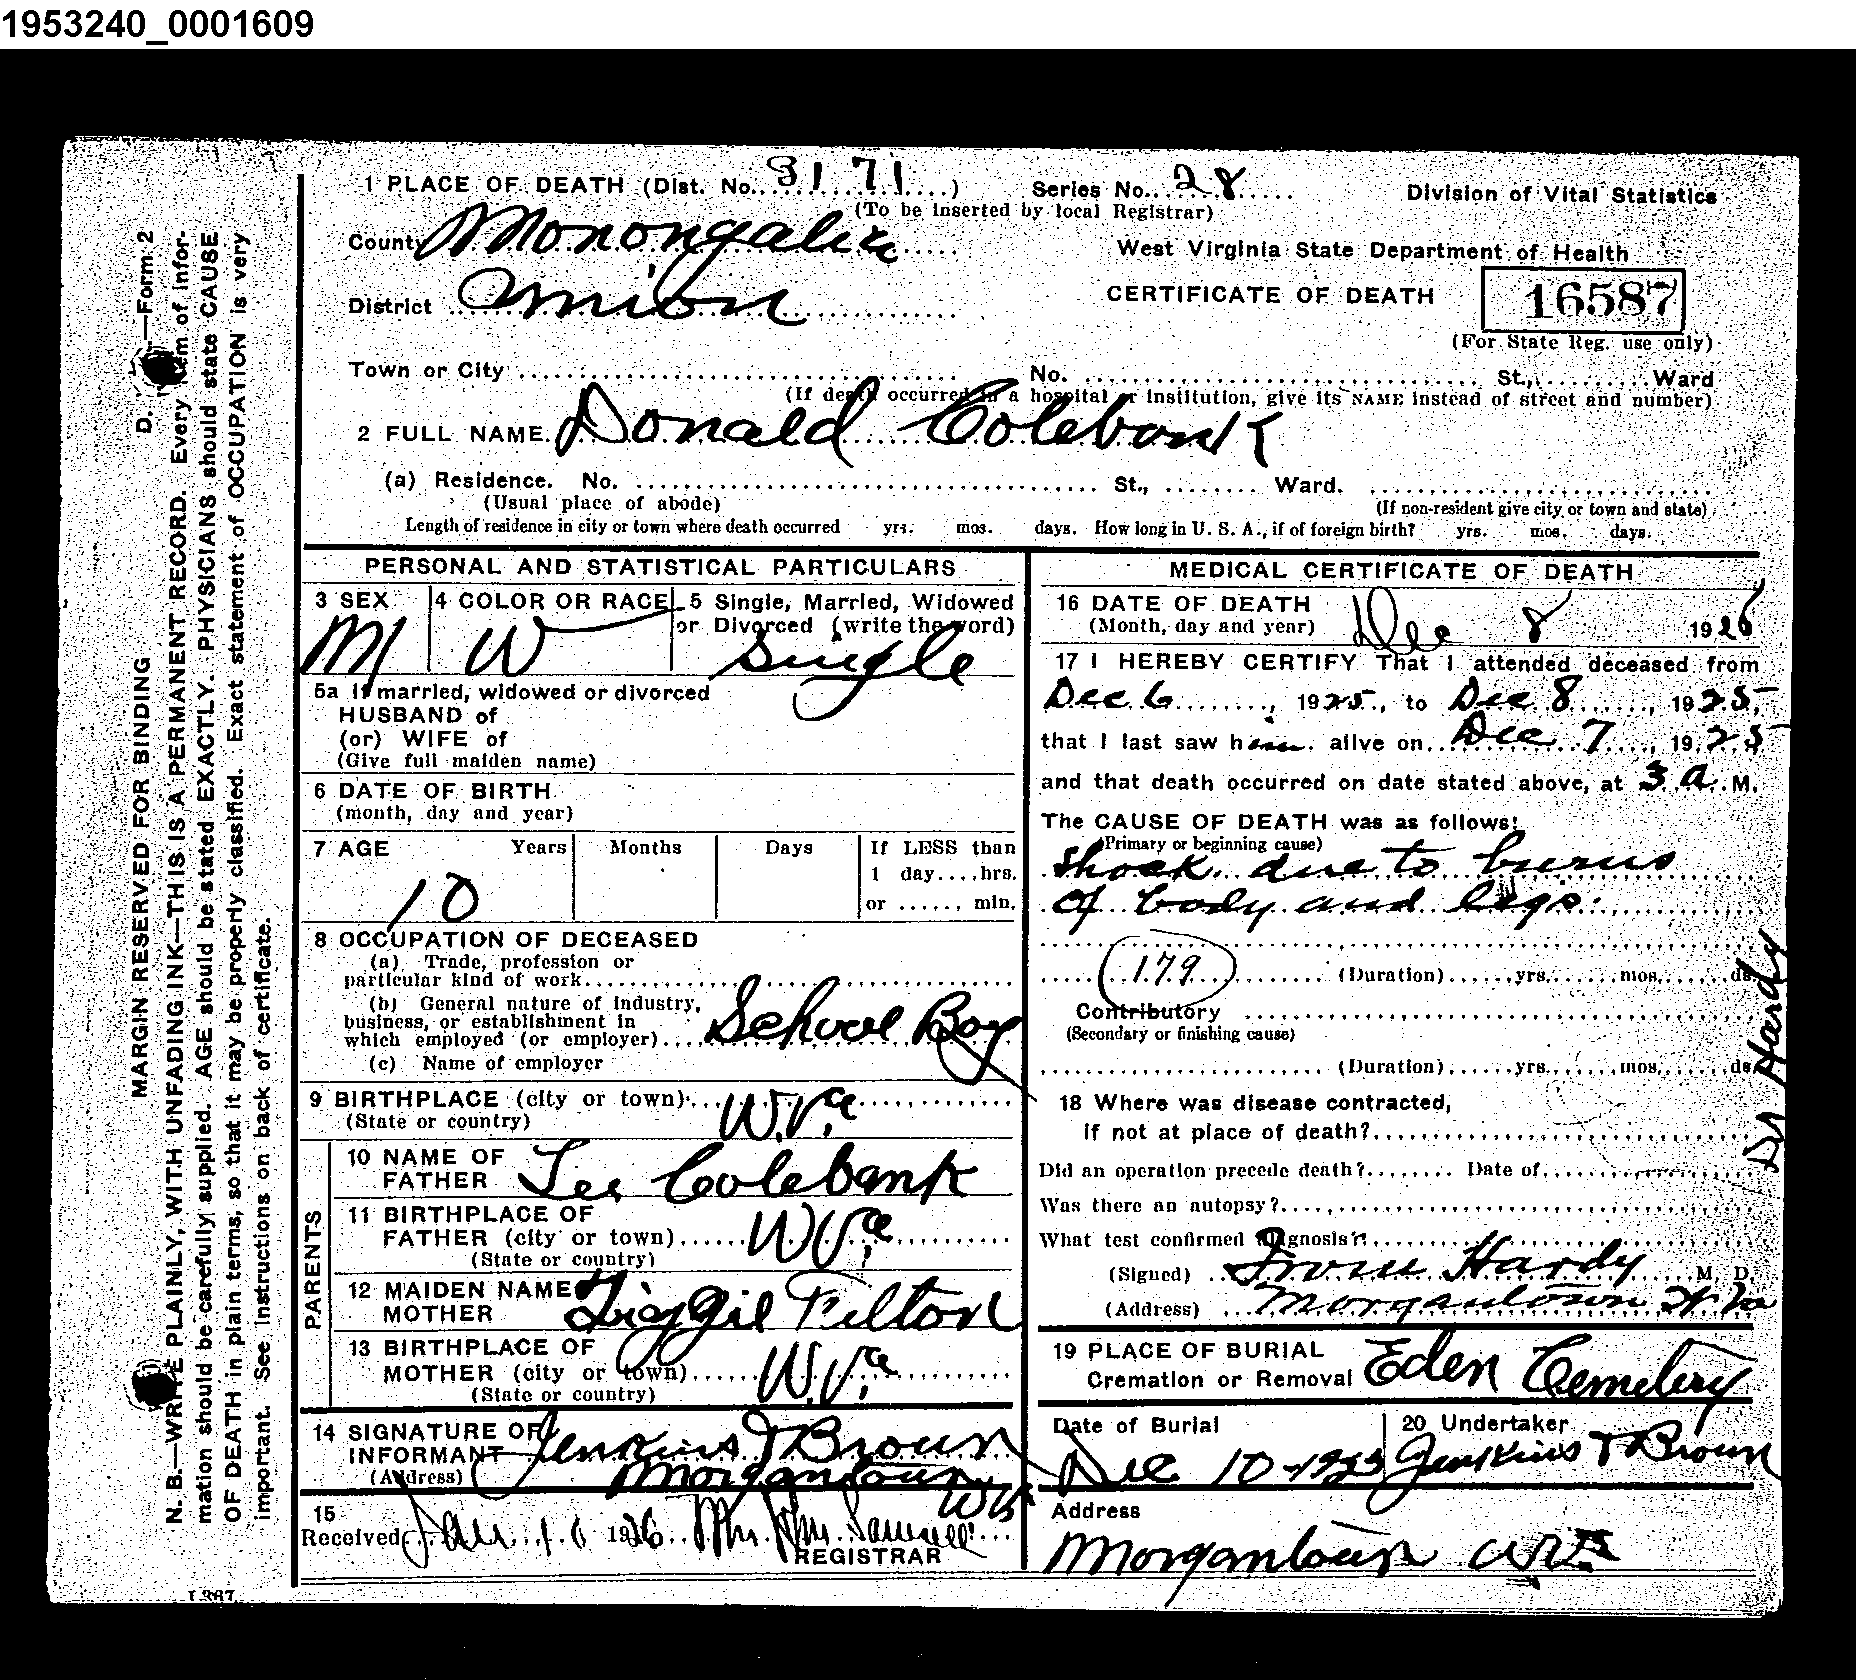 1953240_0001609
1 PLACE OF DEATH (Dist. No. 3171) Series No. 28 Division of Vital Statistics
(To be inserted by local Registrar)
County Monongalia West Virginia State Department of Health
District Union CERTIFICATE OF DEATH 16587
(For State Reg. use only)
Town or City No. St., Ward
(If death occurred in a hospital or institution, give its NAME instead of street and number)
2 FULL NAME Donald Colebank
(a) Residence. No. St., Ward.
(Usual place of abode) (If non-resident give city or town and state)
Length of residence in city or town where death occurred yrs. mos. days. How long in U. S. A., if of foreign birth? yrs. mos. days.
PERSONAL AND STATISTICAL PARTICULARS
3 SEX 4 COLOR OR RACE 5 Single, Married, Widowed
or Divorced (write the word)
M W Single
5a If married, widowed or divorced
HUSBAND of
(or) WIFE of
(Give full maiden name)
6 DATE OF BIRTH
(month, day and year)
7 AGE Years Months Days If LESS than
1 day....hrs.
or ...... min.
10
8 OCCUPATION OF DECEASED
(a) Trade, profession or
particular kind of work
(b) General nature of industry,
business, or establishment in
which employed (or employer) School Boy
(c) Name of employer
9 BIRTHPLACE (city or town) W.Va
(State or country)
PARENTS
10 NAME OF
FATHER Lee Colebank
11 BIRTHPLACE OF
FATHER (city or town) W Va
(State or country)
12 MAIDEN NAME OF
MOTHER Felton
13 BIRTHPLACE OF
MOTHER (city or town) W.Va
(State or country)
14 SIGNATURE OF
INFORMANT Jenkins & Brown
(Address) Morgantown
W Va
15
Received Jan. 1926
REGISTRAR
MEDICAL CERTIFICATE OF DEATH
16 DATE OF DEATH
(Month, day and year) Dec 8 192
17 I HEREBY CERTIFY That I attended deceased from
Dec 6, 1925, to Dec 8, 1925,
that I last saw him alive on Dec 7, 1925
and that death occurred on date stated above, at 3 a. M.
The CAUSE OF DEATH was as follows:
(Primary or beginning cause)
Shock due to burns
of body and legs.
179 (Duration) yrs. mos. ds.
Contributory
(Secondary or finishing cause)
(Duration) yrs. mos. ds.
18 Where was disease contracted,
if not at place of death?
Did an operation precede death? Date of
Was there an autopsy?
What test confirmed diagnosis?
(Signed) Hardy M. D.
(Address) Morgantown W Va
19 PLACE OF BURIAL
Cremation or Removal Eden Cemetery
Date of Burial 20 Undertaker
Dec 10-192 Jenkins & Brown
Address
Morgantown W Va
Dr Hardy
D. —Form 2
MARGIN RESERVED FOR BINDING
N. B.—WRITE PLAINLY, WITH UNFADING INK—THIS IS A PERMANENT RECORD. Every item of infor-
mation should be carefully supplied. AGE should be stated EXACTLY. PHYSICIANS should state CAUSE
OF DEATH in plain terms, so that it may be properly classified. Exact statement of OCCUPATION is very
important. See instructions on back of certificate.